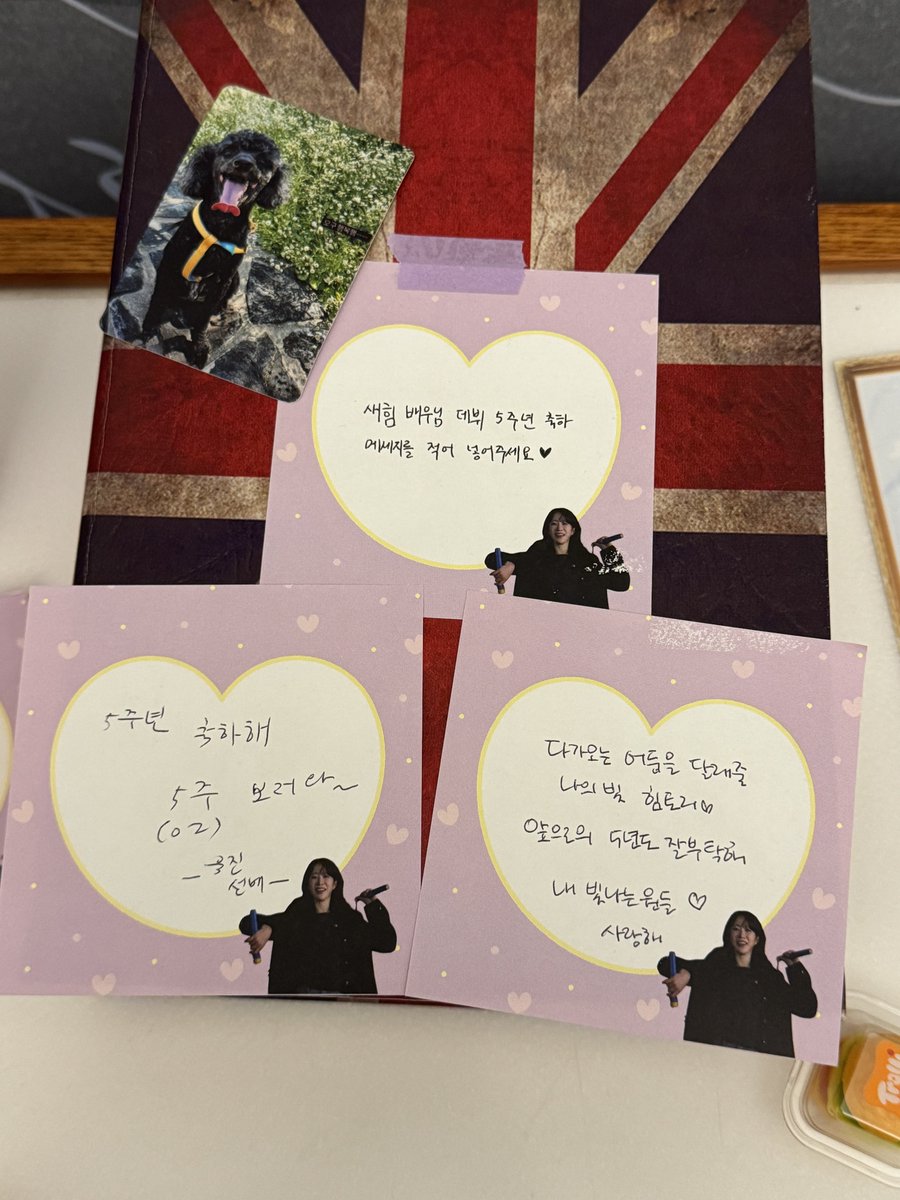 새힘 배우님 데뷔 5주년 축하
메세지를 적어 넣어주세요♥
5주년 축하해
5주 보러 와~
(02)
선배
다가오는 어둠을 달래줄
나의 빛 힘토리♡
앞으로의 5년도 잘부탁해
내 빛나는 원들 ♡
사랑해